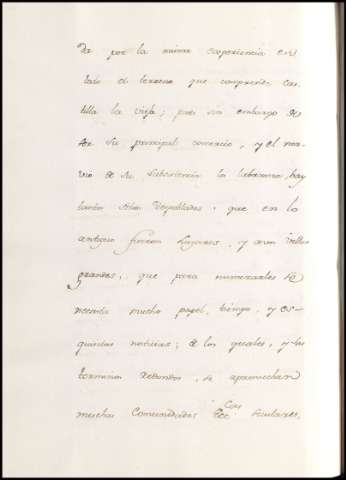 da por la misma experiencia en
todo el terreno que comprende Cas-
tilla la vieja; pues sin embargo de
ser su principal comercio, y el ner-
vio de su subsistencia la labranza, hay
tantos sitios despoblados, que en lo
antiguo fueron Lugares, y aun villas
grandes, que para numerarles se
necesita mucho papel, tiempo, y es-
quisitas noticias; de los quales, y sus
terminos redondos, se aprovechan
muchas Comunidades Seculares,